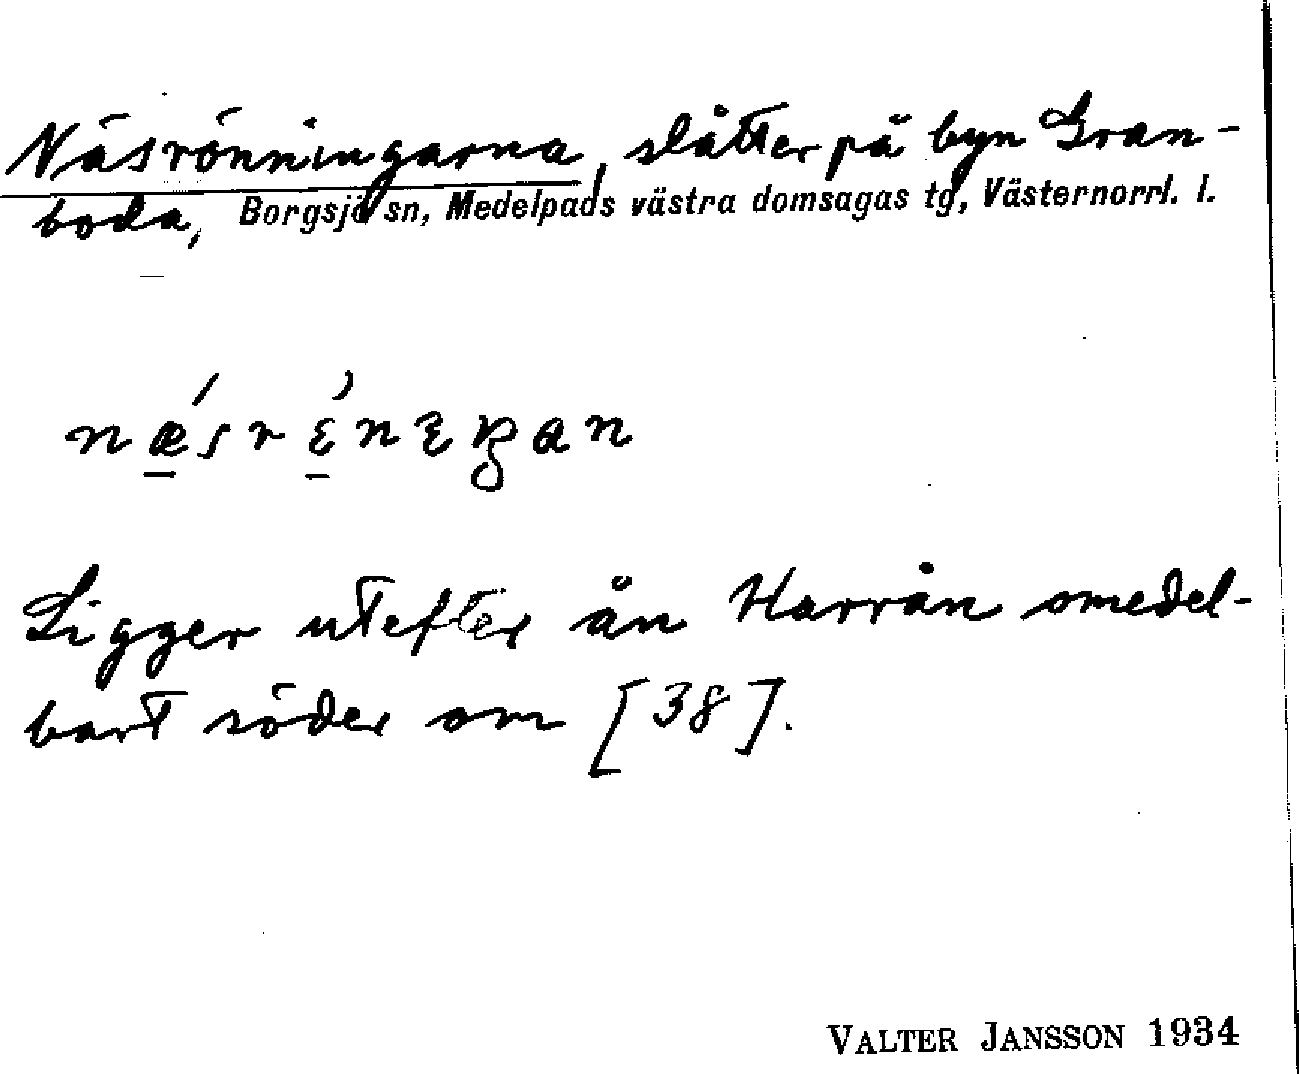 Näsrönningarna, slåtter på byn Gran-
boda, Borgsjö sn, Medelpads västra domsagas tg, Västernorrl. l.
Ligger utefter ån Harrån omedel-
bart söder om [38].
VALTER JANSSON 1934